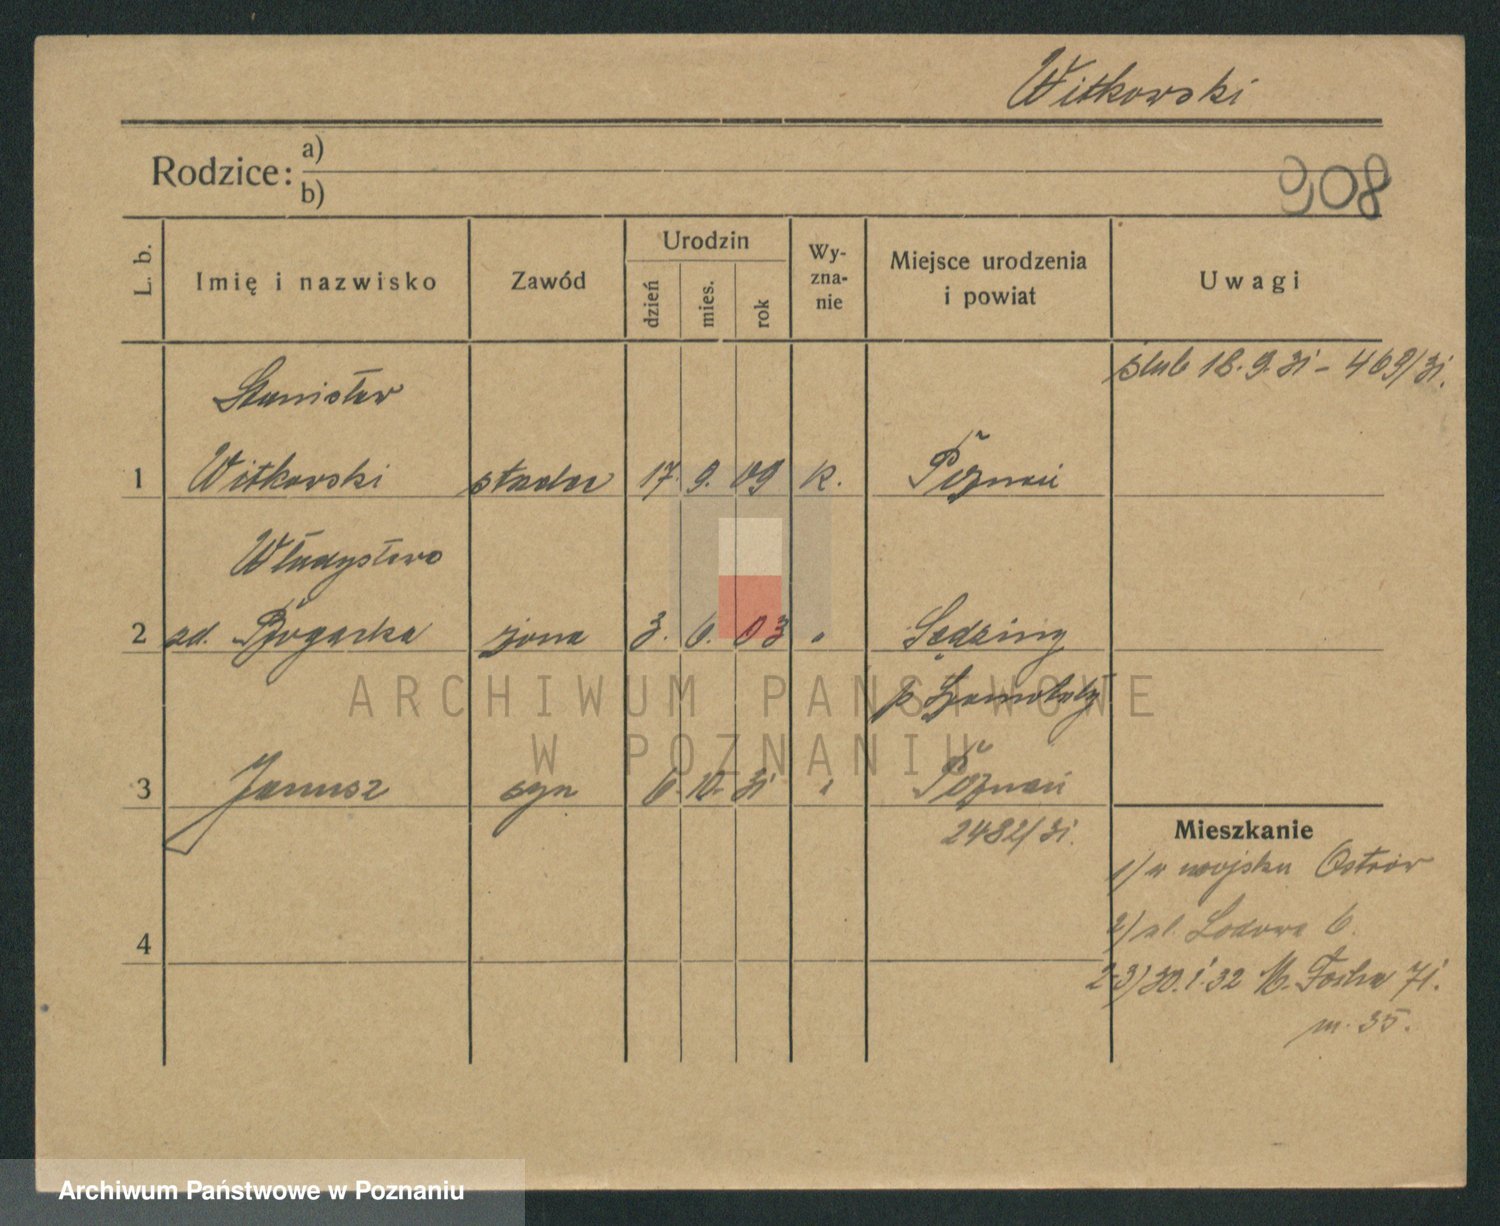 Witkowski
Rodzice: a)
b)
908
L. b.
Imię i nazwisko
Zawód
Urodzin
dzień
mies.
rok
Wy-
zna-
nie
Miejsce urodzenia
i powiat
Uwagi
ślub 18.9.31 - 469/31.
Stanisław
1 Witkowski 17. 9. 09 k. Poznań
Władysława
2 zd. żona 3. 6. 03 " Sędziny
p. Szamotuły
3 Janusz syn 6. 10. 31 " Poznań
2482/31.
4
Mieszkanie
1/ w wojsku Ostrów
2/ ul. Lodowa 6.
2-3/ 30.1.32 M. Focha 71.
m. 35.
ARCHIWUM PAŃSTWOWE
W POZNANIU
Archiwum Państwowe w Poznaniu